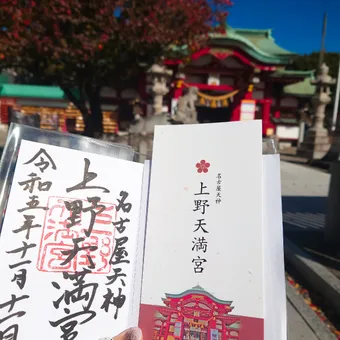 名古屋天神
上野天満宮
令和五年十一月十二日
名古屋天神
上野天満宮